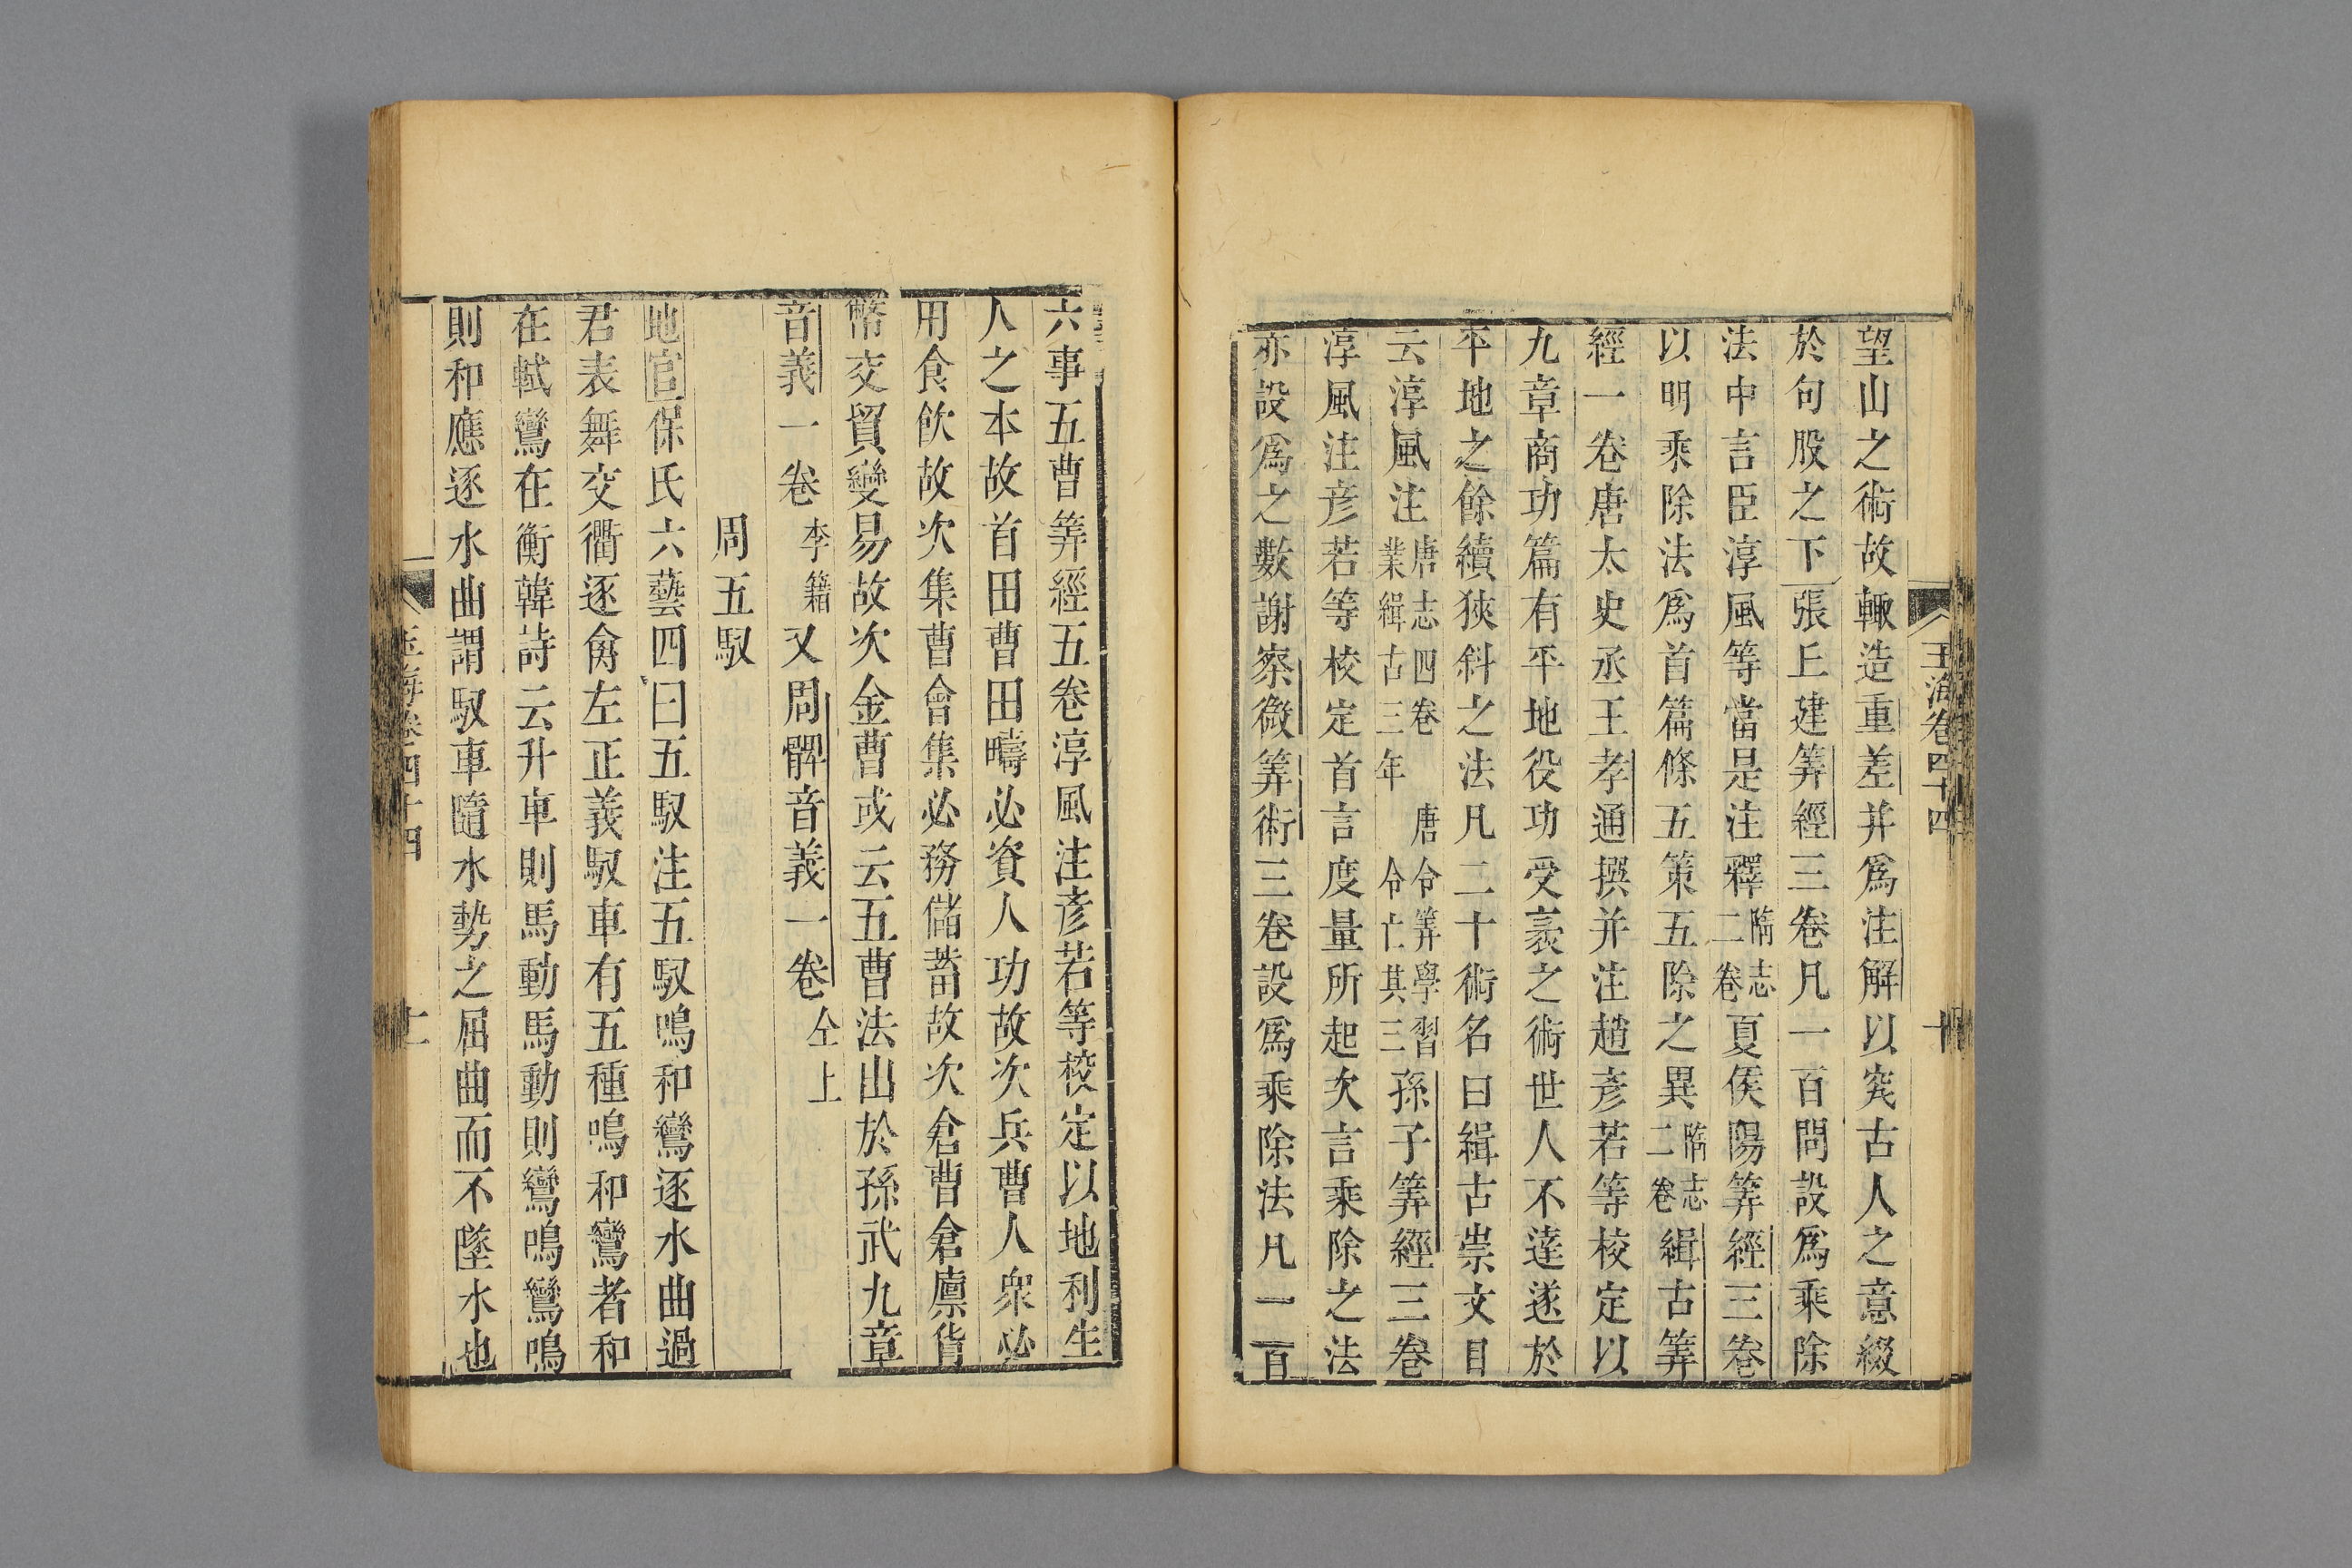 玉海卷四十四
十
望山之術故輙造重差并爲注解以究古人之意綴
於句股之下張丘建筭經三卷凡一百問設爲乘除
法中言臣淳風等當是注釋隋志二卷夏侯陽筭經三卷
以明乘除法爲首篇條五策五除之異隋志二卷緝古筭
經一卷唐太史丞王孝通撰并注趙彦若等校定以
九章商功篇有平地役功受袤之術世人不達遂於
平地之餘續狹斜之法凡二十術名曰緝古崇文目
云淳風注唐志四卷業緝古三年唐令筭學習令亡其三孫子筭經三卷
淳風注彦若等校定首言度量所起次言乘除之法
亦設爲之數謝察微筭術三卷設爲乘除法凡一百
六事五曹筭經五卷淳風注彦若等校定以地利生
人之本故首田曹田疇必資人功故次兵曹人衆必
用食飲故次集曹會集必務儲蓄故次倉曹倉廪貨
幣交貿變易故次金曹或云五曹法出於孫武九章
音義一卷李籍又周髀音義一卷仝上
周五馭
地官保氏六藝四曰五馭注五馭鳴和鸞逐水曲過
君表舞交衢逐禽左正義馭車有五種鳴和鸞者和
在軾鸞在衡韓詩云升車則馬動馬動則鸞鳴鸞鳴
則和應逐水曲謂馭車隨水勢之屈曲而不墜水也
玉海卷四十四
十一